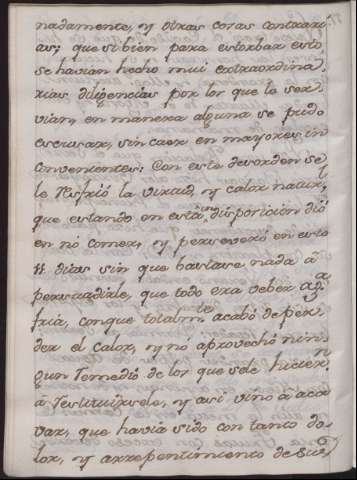 nadamente, y otras cosas contrari
as; que si bien para estorbar esto
se havian hecho mui extraordina
rias diligencias por los que lo ser
vian, en manera alguna se pudo
escusar, sin caer en mayores in
convenientes: Con este desorden se
le resfrió la virtud, y calor natur.l
que estando en esta disposición dió
en nó comer, y perseveró en esto
11 dias sin que bastase nada á
persuadirle, que todo era veber ag.a
fria, conque totalm.te acabó de per
der el calor, y nó aprovechó nin
gun remedio de los que se le hicier.n
á restituirsele, y asi vino á aca
var, que havia sido con tanto do
lor, y arrepentimiento de sus